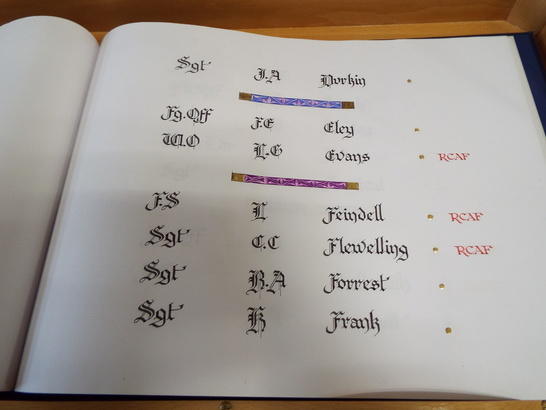 Sgt J.A Dorkin
Fg.Off F.E Eley
W.O L.G Evans RCAF
F.S L Feindell RCAF
Sgt C.C Flewelling RCAF
Sgt B.A Forrest
Sgt K Frank